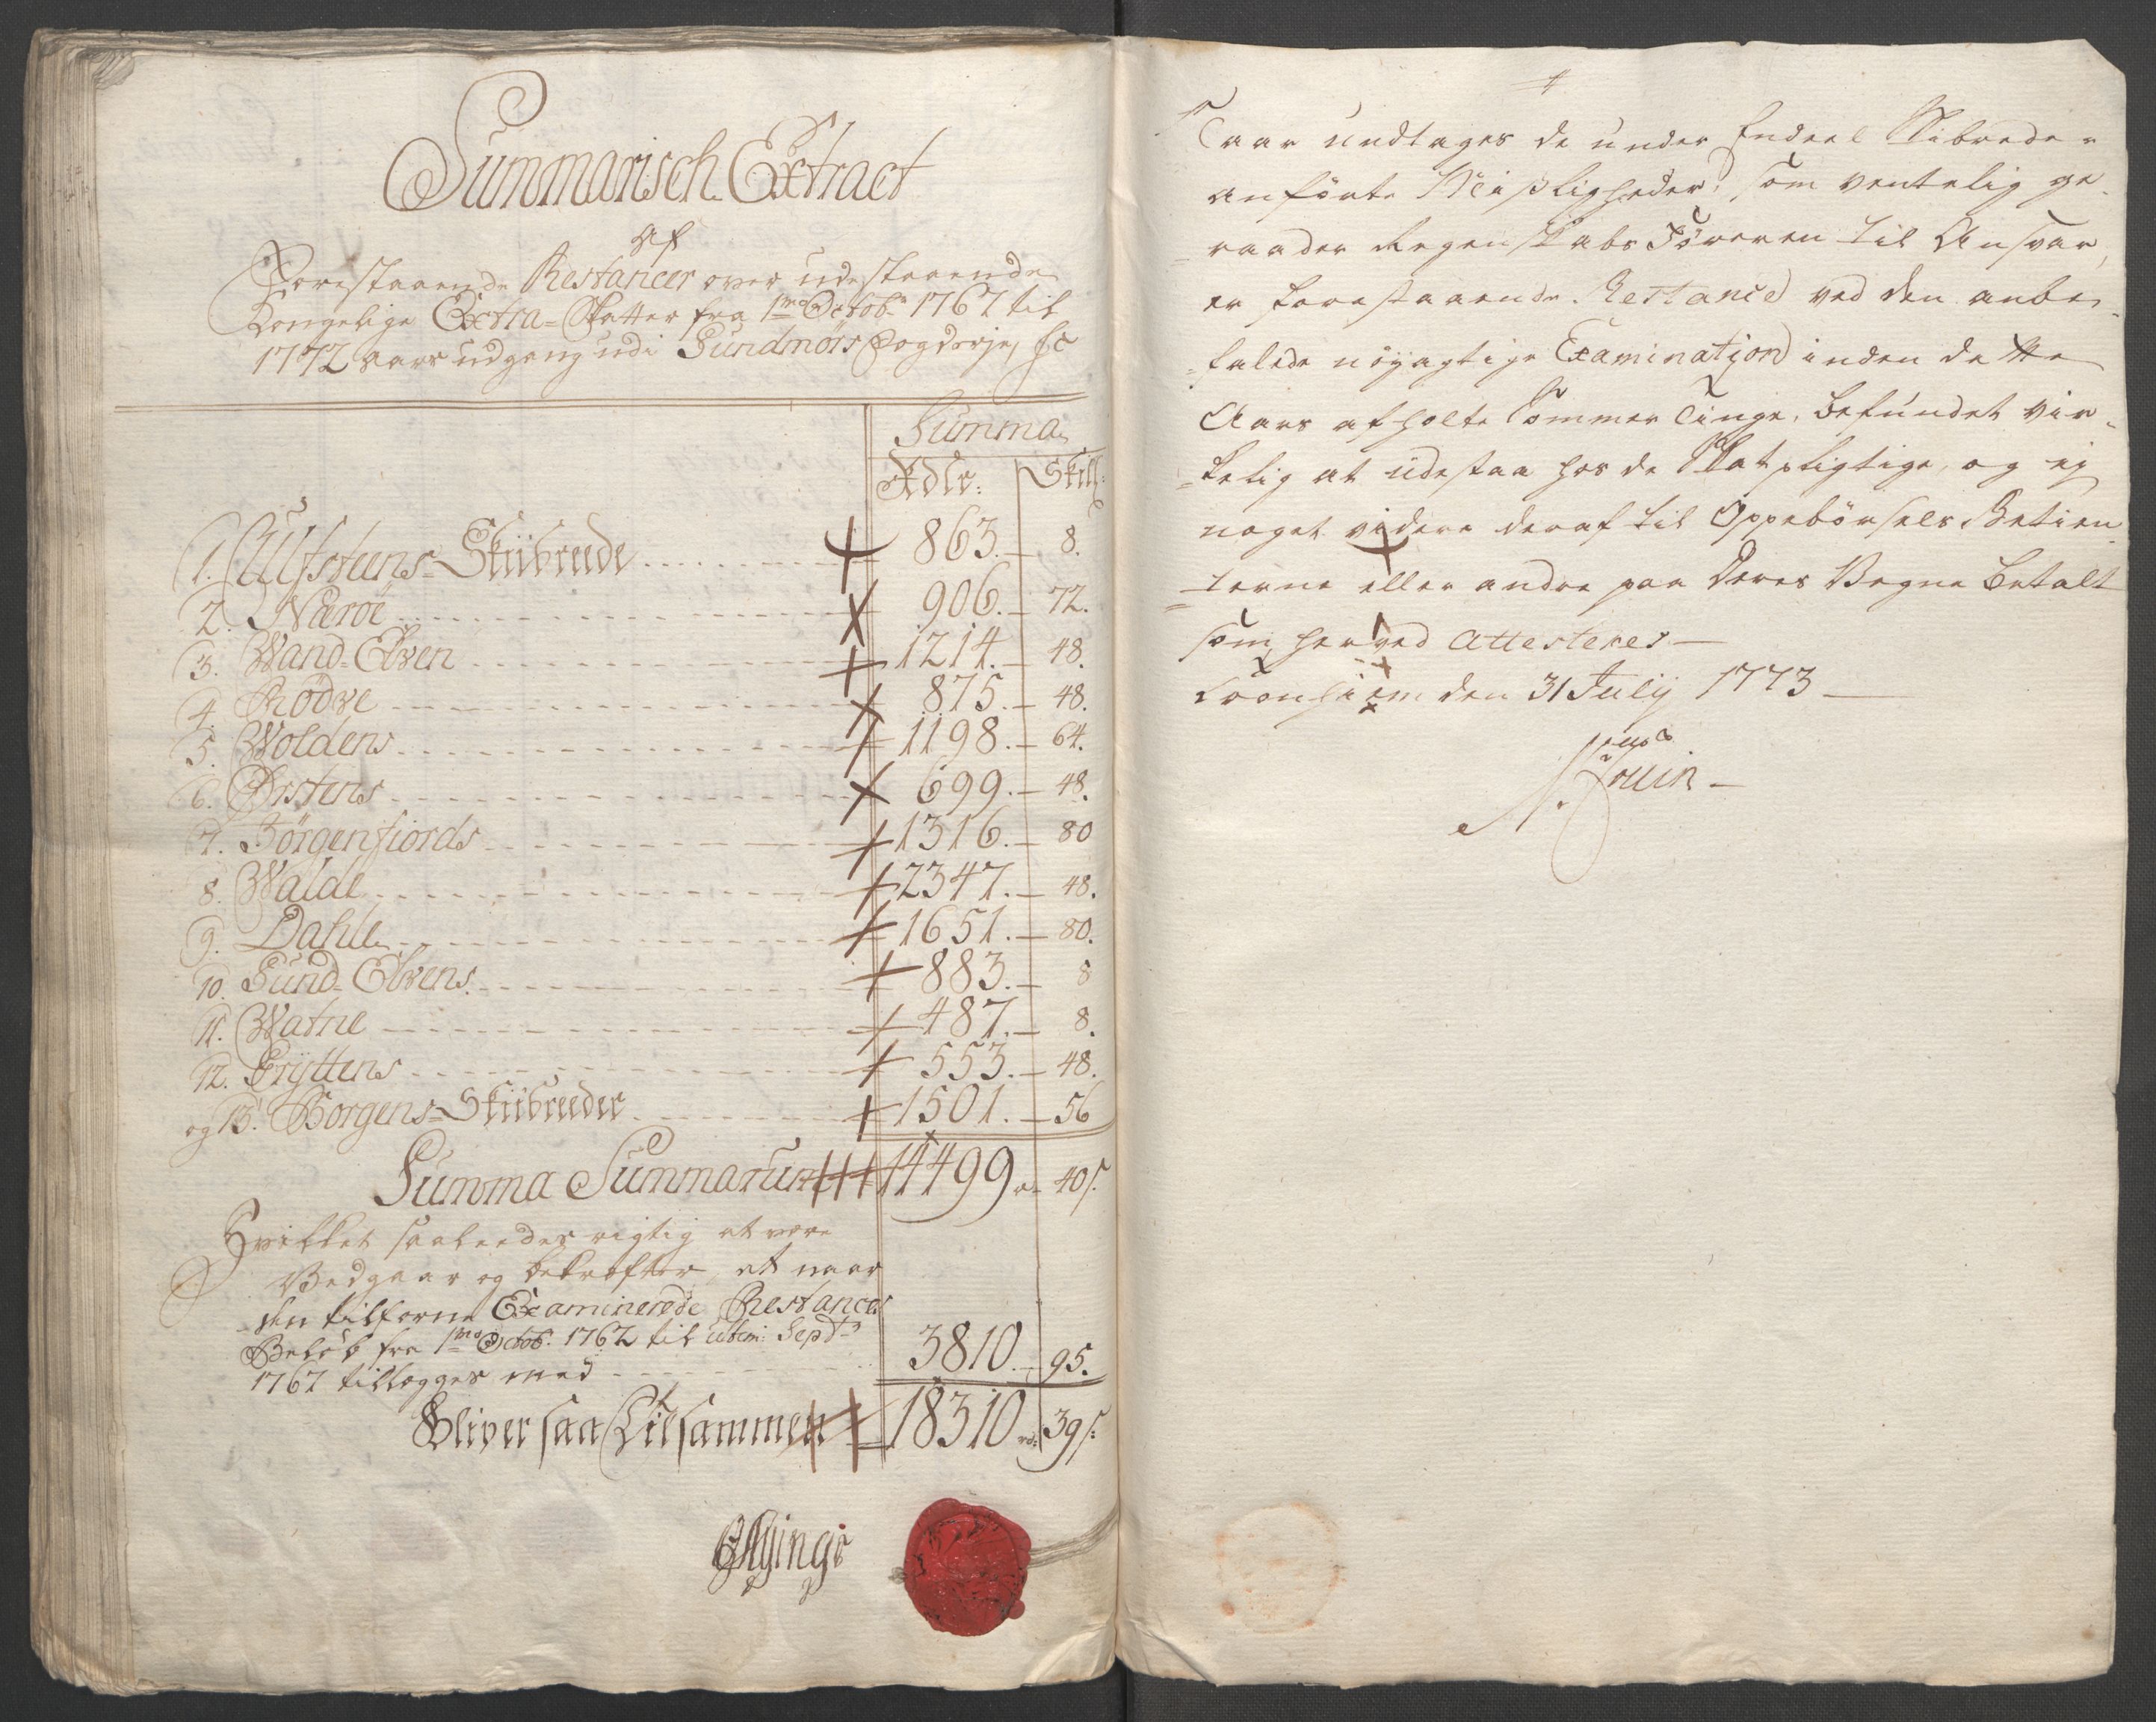 Summarisch Extract
Af
Forestaaende Restancer over udestaaende
Kongelige Extra-Skatter fra 1mo Octobr 1767 til
1772 Aars udgang udi Sundmörs Fogderje,
Summa
Rdlr: Skill:
1. Ulfsteens-Skiibreede 863.– 8.
2. Næröe 906.– 72.
3. Wand-Elven 1214.– 48.
4. Rödve 875.– 48.
5. Woldens 1198.– 64.
6. Ørstens 699.– 48.
7. Jörgenfjords 1316.– 80
8. Walde 2347.– 48.
9. Dahle 1651.– 80.
10. Sund-Elvens 883.– 8
11. Watne 487.– 8.
12. Gryttens 553.– 48.
og 13. Borgens-Skiibreeder 1501.– 56
Summa Summarum 14499 40 s.
Hvilket saaleedes rigtig at være
Vedgaar og bekræfter, at naar
den tilforne Examinerede Restances
Belöb fra 1mo Octob: 1762 til ultim: Septr
1767 tillægges med 3810.– 95.
Bliver saa Tilsammen 18310 rd: 39 s:

Naar undtages de under Endeel Skibreder
anförte Misligheder, som ventelig ge-
raader Regenskabs Föreren til Ansvar,
er forestaaende Restance ved den anbe-
falede nöyagtige Examination inden dette
Aars afholte Sommer Tinge, befundet vir-
kelig at udestaa hos de Skatpligtige, og ej
noget videre deraf til Oppebörsels Betien-
terne eller andre paa Deres Vegne betalt
som herved Attesteres—
Tronhiem den 31 July 1773—